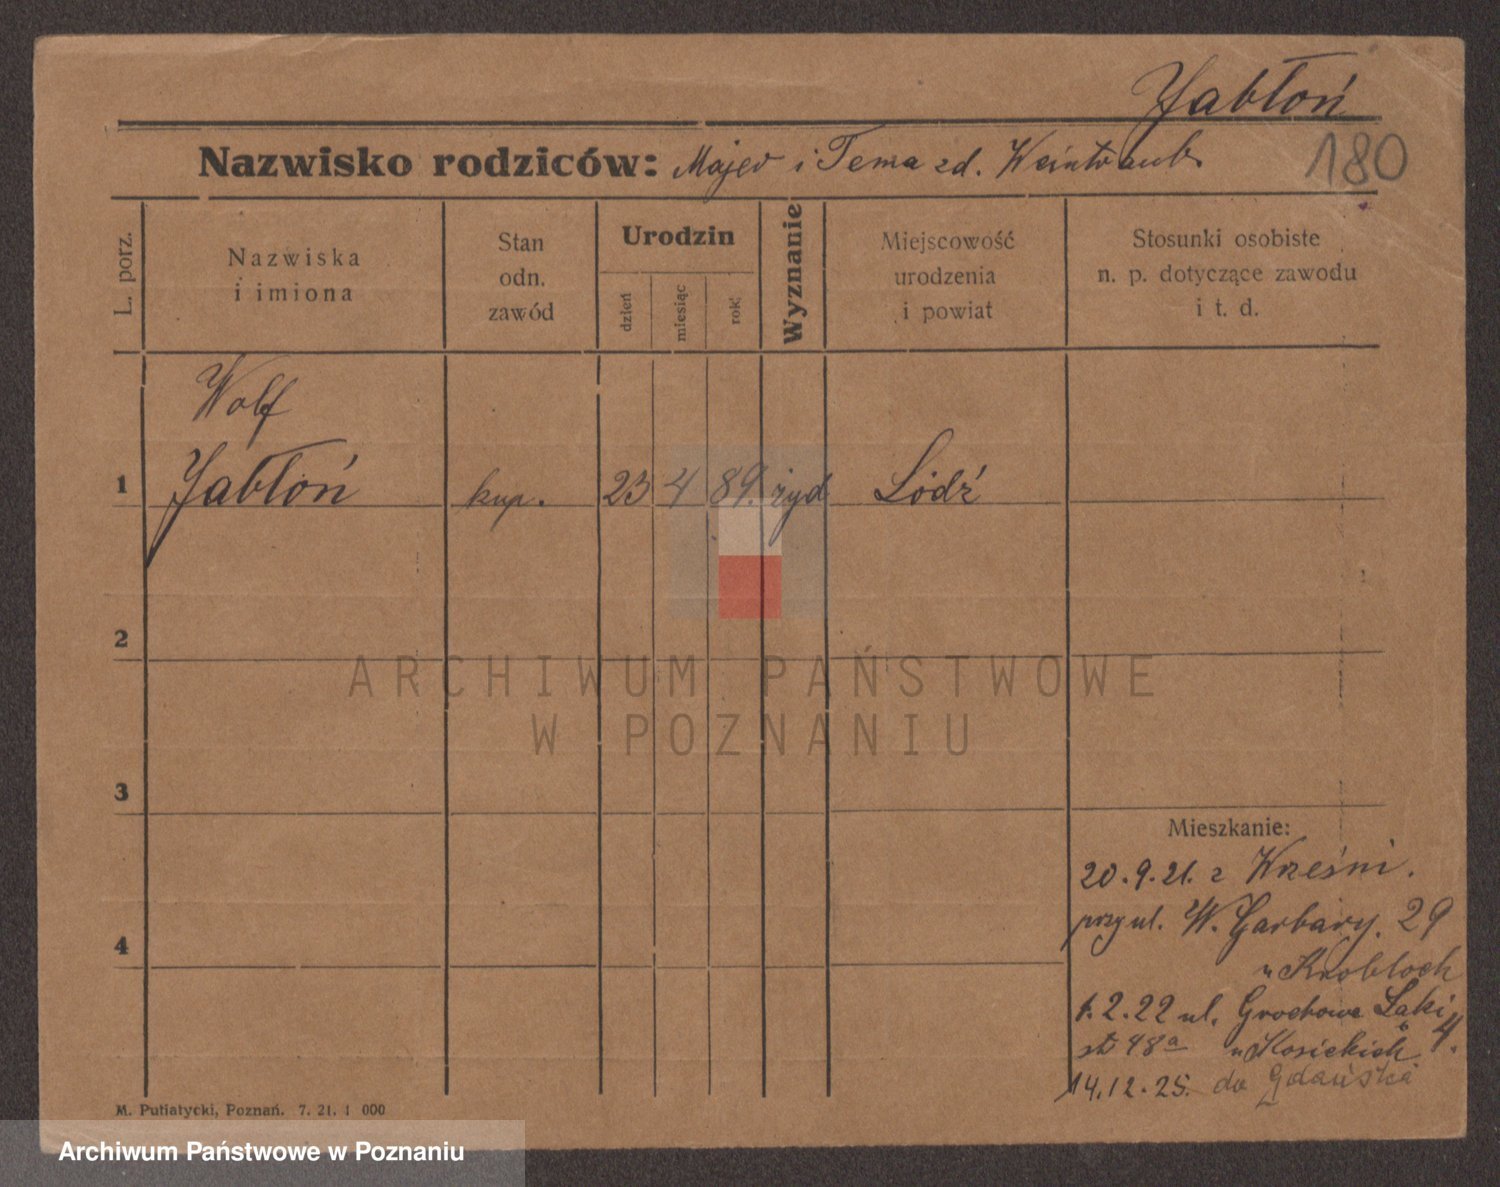 Jabłoń
Nazwisko rodziców: Majer i Tema zd. Weintraub
180
L. porz.
Nazwiska
i imiona
Stan
odn.
zawód
Urodzin
dzień
miesiąc
rok
Wyznanie
Miejscowość
urodzenia
i powiat
Stosunki osobiste
n. p. dotyczące zawodu
i t. d.
Wolf
1 Jabłoń kup. 23 4 89. żyd Łódź
2
ARCHIWUM PAŃSTWOWE
W POZNANIU
3
Mieszkanie:
20.9.21. z Wrześni.
przy ul. W. Garbary. 29
u Knobloch
4
1.2.22 ul. Grochowe Łąki 4.
u Kosickich
14.12.25. do Gdańska
M. Putiatycki, Poznań. 7. 21. 1 000
Archiwum Państwowe w Poznaniu